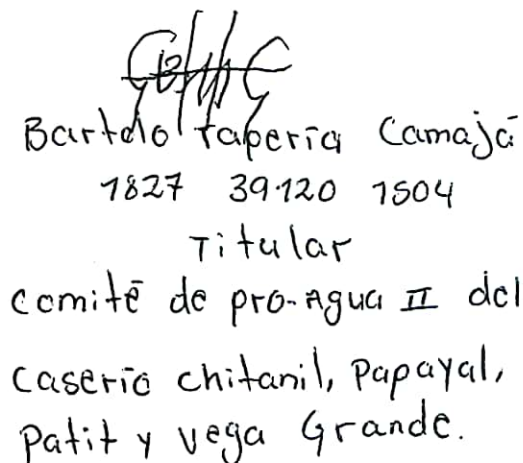 Bartolo Taperia Camajá
1827 39120 1504
Titular
comité de pro-Agua II del
caserio chitanil, Papayal,
Patit y vega Grande.